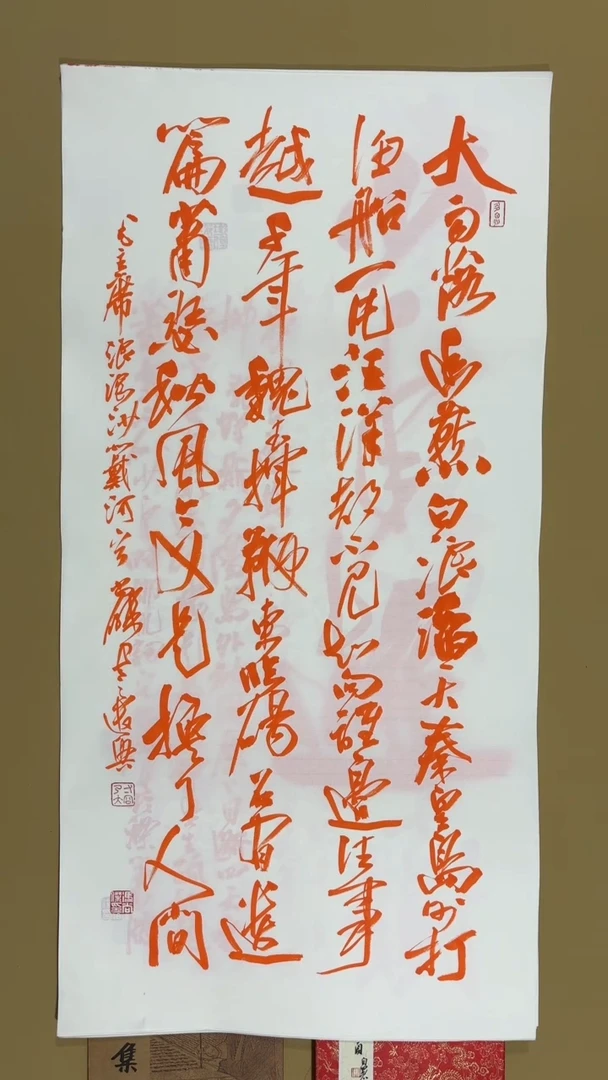 大雨落幽燕白浪滔天秦皇島外打
漁船一片汪洋都不見知向誰邊往事
越千年魏武揮鞭東臨碣石有遺
篇蕭瑟秋風今又是換了人間
毛主席浪淘沙北戴河
集
自